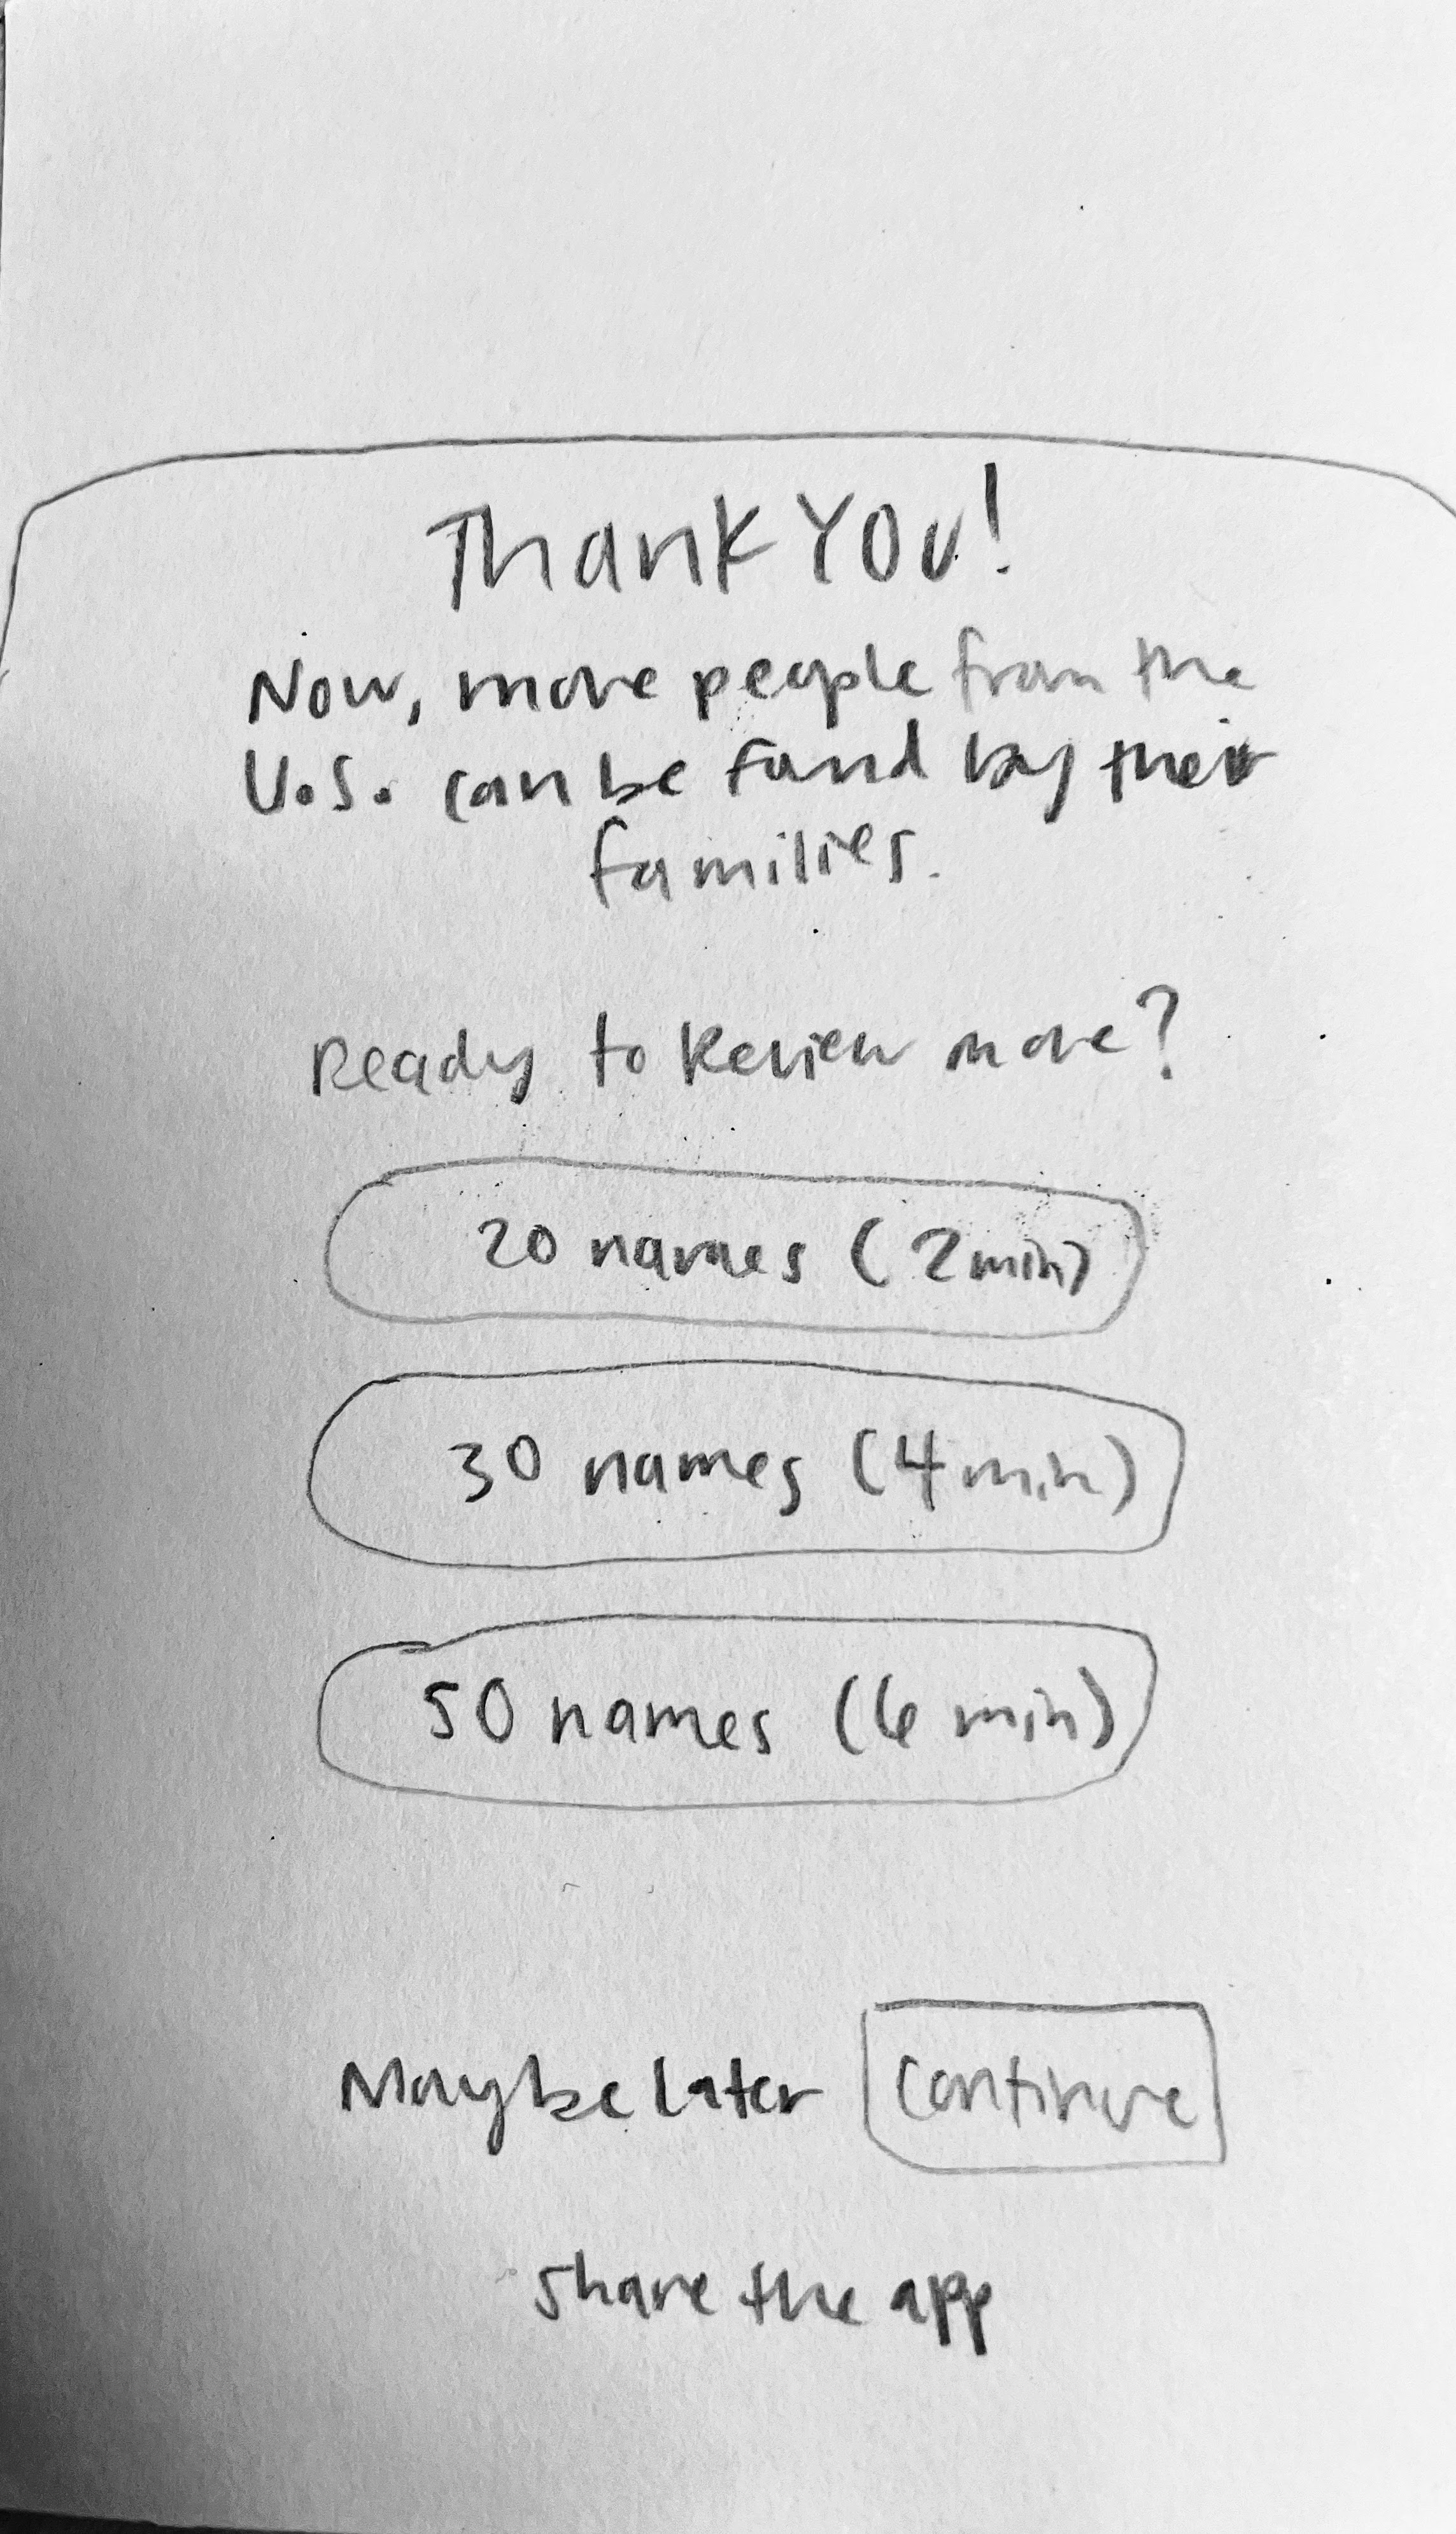 Thank YOU!
Now, more people from the
U.S. can be found by their
families.
Ready to Review more?
20 names (2 min)
30 names (4 min)
50 names (6 min)
Maybe later Continue
Share the app